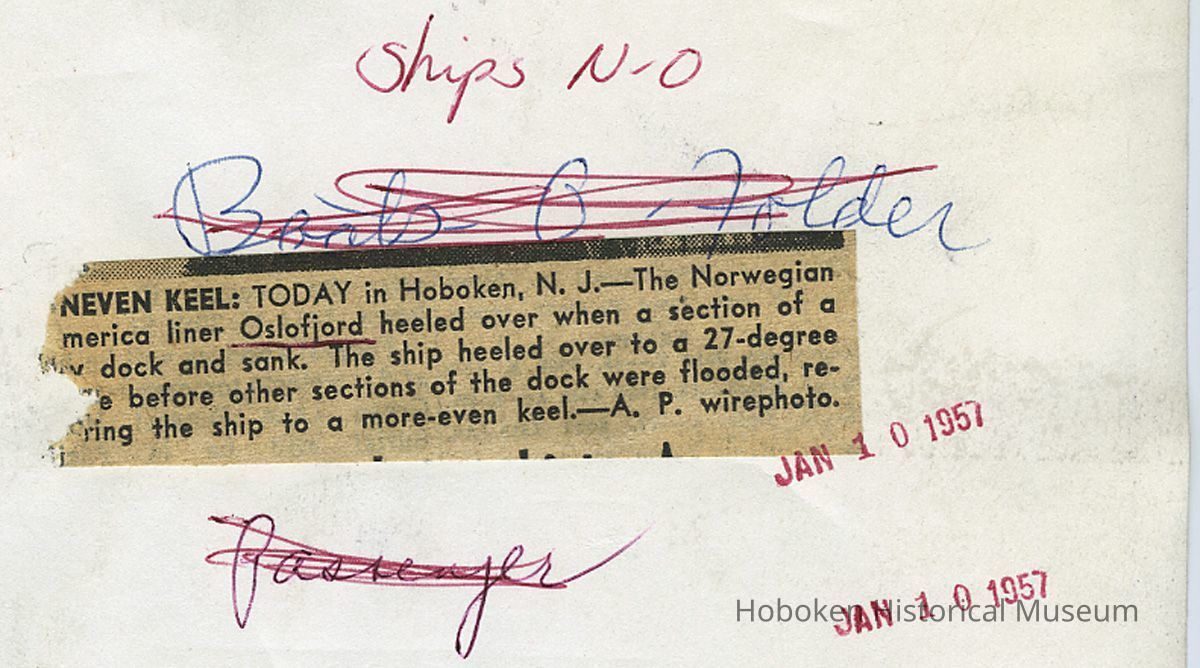 Ships N-O
Boats O - Folder
NEVEN KEEL: TODAY in Hoboken, N. J.—The Norwegian
merica liner Oslofjord heeled over when a section of a
dock and sank. The ship heeled over to a 27-degree
e before other sections of the dock were flooded, re-
ring the ship to a more-even keel.—A. P. wirephoto.
JAN 10 1957
Passenger
JAN 10 1957
Hoboken Historical Museum